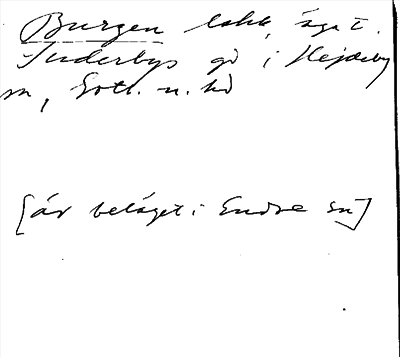 Burgen lokk, äga t.
Suderbys gd i Hejdeby
sn, Gotl. n. hd
[är beläget i Endre sn]